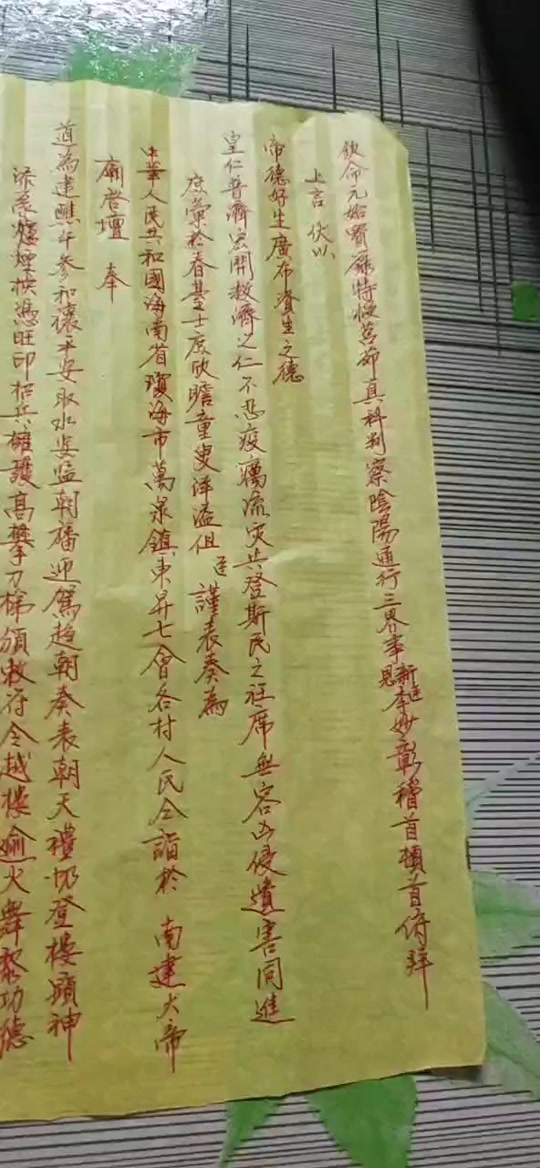 欽命元始寶籙特授莒節真科判察陰陽通行三界事新進恩李妙彰稽首頓首俯拜
上言 伏以
帝德好生廣布資生之德
皇仁普濟宏開救濟之仁不忍疫癘流災共登斯民之衽席無容凶侵遺害同進
庶彙於春基士庶欣瞻童叟洋溢但進謹表奏為
中華人民共和國海南省瓊海市萬泉鎮東昇七會各村人民仝詣於 南建大帝
廟啓壇 奉
道為建醮斗參和禳平安取水安監朝旛迎駕起朝奏表朝天禮切登樓顯神
憑旺印招兵擁護高攀刀梯頒敕符令越樓踰火舞黎功德